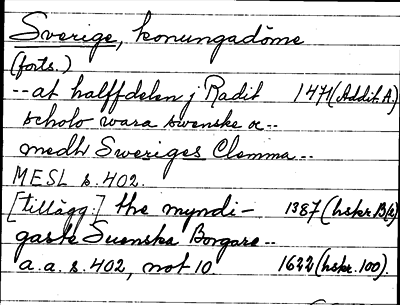 Sverige, konungadöme
(forts.)
-- at halffdelen j Radit 1471 (Addit. A)
scholo wara swenske oc --
medh Sweriges Clemma --
MESL s. 402.
[tillägg:] the myndi- 1387 (hskr. B(e)
gaste Suenska Borgare --
a. a. s. 402, not 10. 1622 (hskr. 100).